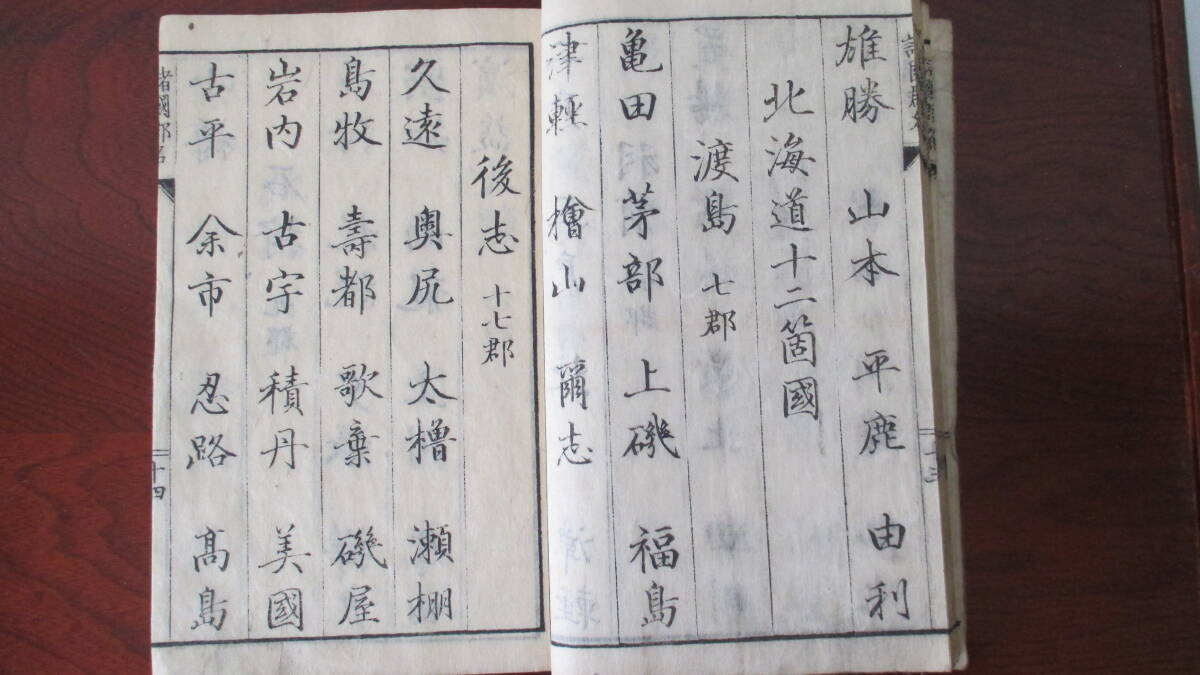 雄勝 山本 平鹿 由利
北海道十二箇國
渡島 七郡
亀田 茅部 上磯 福島
津輕 檜山 爾志
後志 十七郡
久遠 奥尻 太櫓 瀬棚
島牧 壽都 歌棄 磯屋
岩内 古宇 積丹 美國
古平 余市 忍路 髙島
諸國郡名
十四